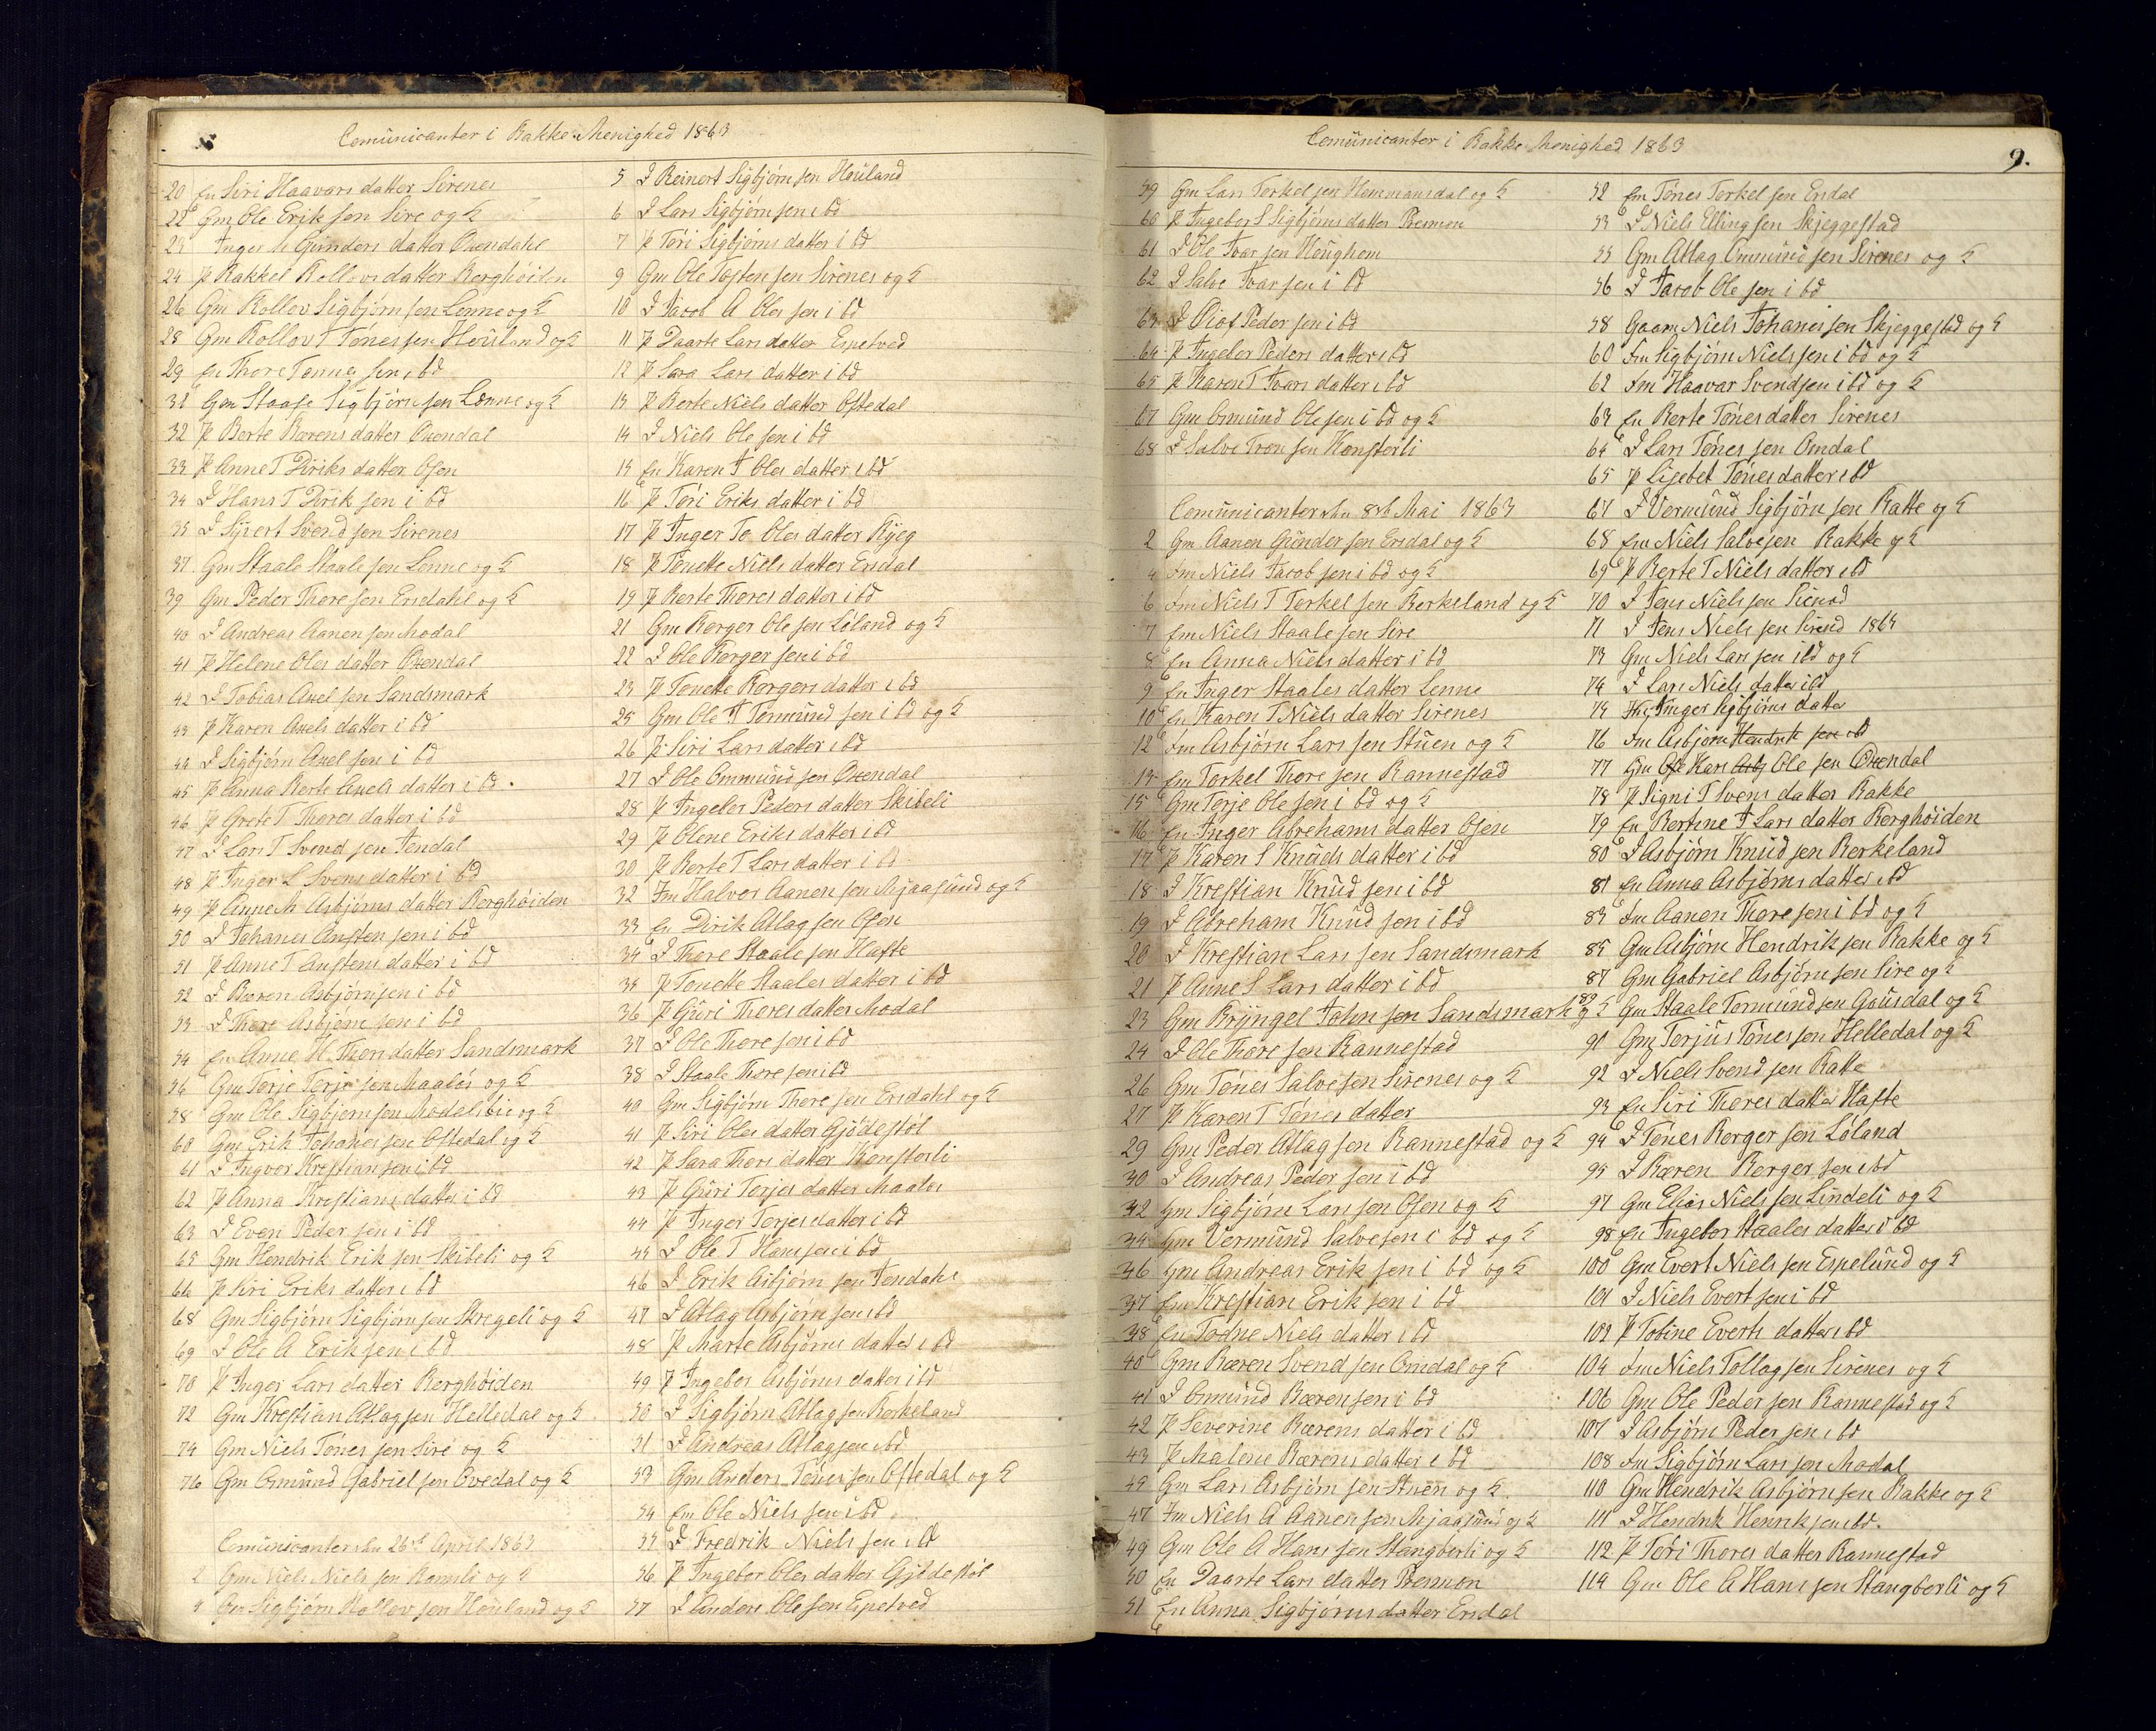 Comünicanter i Bakke Menighed 1863
20 En Siri Haavars datter Sirenes
22 Gm Ole Erik sen Sire og H
23 Inger M Gunders datter Oxendahl
24 P Rakkel Rollovs datter Berghöiden
26 Gm Rollov Sigbjörn sen Lonne og H
28 Gm Rollov T Tönes sen Houland og H
29 En Thore Tonnes sen i bd
31 Gm Staale Sigbjörn sen Lonne og H
32 P Berte Bærens datter Oxendal
33 P Anne T Diriks datter Osen
34 J Hans T Dirik sen i bd
35 J Syvert Svend sen Sirenes
37 Gm Staale Staale sen Lonne og H
39 Gm Peder Thore sen Ersdahl og H
40 J Andreas Aanen sen Modal
41 P Helene Oles datter Oxendal
42 J Tobias Axel sen Sandsmark
43 P Karen Axels datter i bd
44 J Sigbjörn Axel sen i bd
45 P Anna Berte Axels datter i bd
46 P Grete T Thores datter i bd
47 J Lars T Svend sen Jendal
48 P Inger L Svens datter i bd
49 P Anne M Asbjörns datter Berghöiden
50 J Johanes Ansten sen i bd
51 P Anne T Anstens datter i bd
52 J Bæren Asbjörnsen i bd
53 J Thore Asbjörn sen i bd
54 En Anne H Thors datter Sandsmark
56 Gm Terje Terje sen Maaløs og H
58 Gm Ole Sigbjörn sen Modalsbie og H
60 Gm Erik Johanes sen Oftedal og H
61 J Ingvor Krestian sen i bd
62 P Anna Krestians datter i bd
63 J Even Peder sen i bd
65 Gm Hendrik Erik sen Skibeli og H
66 P Siri Eriks datter i bd
68 Gm Sigbjörn Sigbjörn sen Skregeli og H
69 J Ole A Erik sen i bd
70 P Inger Lars datter Berghöiden
72 Gm Krestian Atlag sen Helledal og H
74 Gm Niels Tönes sen Sire og H
76 Gm Omünd Gabriel sen Ovedal og H
Comünicanter den 26de April 1863
2 Gm Niels Niels sen Ramsli og H
4 Gm Sigbjörn Rollov sen Houland og H
5 J Reinert Sigbjörn sen Houland
6 J Lars Sigbjörn sen i bd
7 P Töri Sigbjörns datter i bd
9 Gm Ole Tosten sen Sirenes og H
10 J Jacob A Oles sen i bd
11 P Daarte Lars datter Espetved
12 P Sara Lars datter i bd
13 P Berte Niels datter Oftedal
14 J Niels Ole sen i bd
15 En Karen J Oles datter i bd
16 P Töri Eriks datter i bd
17 P Inger To Oles datter Rÿeg
18 P Tonette Niels datter Ersdal
19 P Berte Thores datter i bd
21 Gm Berger Ole sen Löland og H
22 J Ole Berger sen i bd
23 P Tonette Bergers datter i bd
25 Gm Ole J Tormünd sen i bd og H
26 P Siri Lars datter i bd
27 J Ole Ommünd sen Oxendal
28 P Ingebor Peders datter Skibeli
29 P Olene Eriks datter i bd
30 P Berte T Lars datter i bd
32 Fm Halvor Aanen sen Mjaasünd og H
33 En Dirik Atlag sen Osen
34 J Thore Staale sen Hafte
35 P Tonette Staales datter i bd
36 P Güri Thores datter Modal
37 J Ole Thore sen i bd
38 J Staale Thore sen i bd
40 Gm Sigbjörn Thore sen Ersdahl og H
41 P Siri Oles datter Gjödestöl
42 P Sara Thors datter Konsterli
43 P Güri Terjes datter Maalos
44 P Inger Terjes datter i bd
45 J Ole T Hans sen i bd
46 J Erik Asbjörn sen Jendahl
47 J Atlag Asbjörn sen i bd
48 P Marte Asbjörns datter i bd
49 P Ingebor Asbjörns datter i bd
50 J Sigbjörn Atlag sen Berkeland
51 J Andreas Atlag sen i bd
53 Gm Anders Tönes sen Oftedal og H
54 Em Ole Niels sen i bd
55 J Fredrik Niels sen i bd
56 P Ingebor Oles datter Gjÿldestöl
57 J Anders Ole sen Espetved
Comünicanter i Bakke Menighed 1863
9.
59 Gm Lars Terkel sen Hommansdal og H
60 P Ingebor S Sigbjörns datter Bremon
61 J Ole Ivar sen Houghom
62 J Salve Ivar sen i bd
63 J Olof Peder sen i bd
64 P Ingebor Peders datter i bd
65 P Karen T Ivars datter i bd
67 Gm Omünd Ole sen i bd og H
68 J Salve Tron sen Konsterli
Comünicanter den 8de Mai 1863
2 Gm Aanen Günder sen Ersdal og H
4 Fm Niels Jacob sen i bd og H
6 Fm Niels T Terkel sen Berkeland og H
7 Em Niels Staale sen Sire
8 En Anna Niels datter i bd
9 En Inger Staales datter Lenne
10 En Karen T Niels datter Sirenes
12 Fm Asbjörn Lars sen Stüen og H
13 Em Torkel Thore sen Rannestad
15 Gm Terje Ole sen i bd og H
16 En Inger Abrehams datter Osen
17 P Karen S Knüds datter i bd
18 J Krestian Knüd sen i bd
19 J Abreham Knüd sen i bd
20 J Krestian Lars sen Sandsmark
21 P Anne S Lars datter i bd
23 Gm Bryngel John sen Sandsmark og H
24 J Ole Thore sen Rannestad
26 Gm Tönes Salve sen Sirenes og H
27 P Karen T Tönes datter
29 Gm Peder Atlag sen Rannestad og H
30 J Andreas Peder sen i bd
32 Gm Sigbjörn Lars sen Osen og H
34 Gm Vermünd Salvesen i bd og H
36 Gm Andreas Erik sen i bd og H
37 Em Krestian Erik sen i bd
38 En Todne Niels datter i bd
40 Gm Bæren Svend sen Omdal og H
41 J Omünd Bæren sen i bd
42 P Severine Bærens datter i bd
43 P Malene Bærens datter i bd
45 Gm Lars Asbjörn sen Stuen og H
47 Fm Niels A Aanen sen Mjaasünd og H
49 Gm Ole A Hans sen Stangborli og H
50 En Daarte Lars datter Bremon
51 En Anna Sigbjörns datter Ersdal
52 Em Tönes Terkel sen Ersdal
53 J Niels Elling sen Skjeggestad
55 Gm Atlag Ommünd sen Sirenes og H
56 J Jacob Ole sen i bd
58 Gaam Niels Johanes sen Skjeggestad og H
60 Fm Sigbjörn Niels sen i bd og H
62 Fm Haavar Svendsen i bd og H
63 En Berte Tönes datter Sirenes
64 J Lars Tönes sen Omdal
65 P Lisebet Tönes datter i bd
67 J Vermünd Sigbjörn sen Ratte og H
68 Em Niels Salvesen Bakke og H
69 P Berte T Niels datter i bd
70 J Jens Niels sen Sirend
71 J Jens Niels sen Sirend 1864
73 Gm Niels Lars sen i bd og H
74 J Lars Niels datter i bd
75 Inger Sigbjörns datter
76 Fm Asbjörn Hendrik sen i bd
77 Gm Ole Hans Asbj Ole sen Oxendal
78 P Signi T Svens datter Bakke
79 En Bertine J Lars datter Berghöiden
80 J Asbjörn Knüd sen Berkeland
81 En Anna Asbjörns datter i bd
83 Fm Aanen Thore sen i bd og H
85 Gm Asbjörn Hendrik sen Bakke og H
87 Gm Gabriel Asbjörn sen Sire og H
89 Gm Staale Tormünd sen Gausdal og H
91 Gm Terjüs Tönes sen Helledal og H
92 J Niels Svend sen Ratte
93 En Siri Thores datter Hafte
94 J Tönes Berger sen Löland
95 J Bæren Berger sen i bd
97 Gm Elias Niels sen Lindeli og H
98 En Ingebor Staales datter i bd
100 Gm Evert Niels sen Espelünd og H
101 J Niels Evert sen i bd
102 P Tobine Everts datter i bd
104 Fm Niels Tollag sen Sirenes og H
106 Gm Ole Peder sen Rannestad og H
107 J Asbjörn Peder sen i bd
108 Fm Sigbjörn Lars sen Modal
110 Gm Hendrik Asbjörn sen Bakke og H
111 J Hendrik Henrik sen i bd.
112 P Töri Thores datter Rannestad
114 Gm Ole A Hans sen Stangborli og H